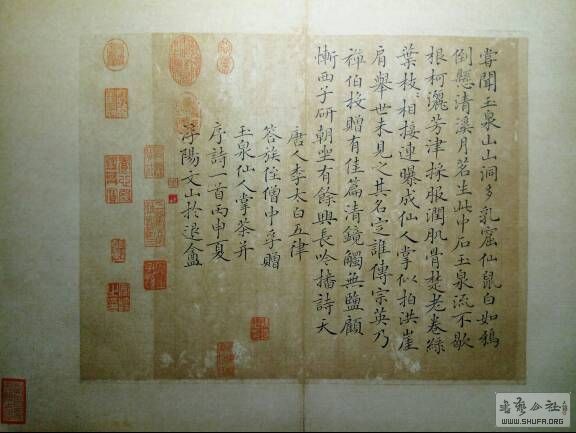 嘗聞玉泉山山洞多乳窟仙鼠白如鵶
倒懸清溪月茗生此中石玉泉流不歇
根柯灑芳津採服潤肌骨楚老卷綠
葉枝〻相接連曝成仙人掌似拍洪崖
肩舉世未見之其名定誰傳宗英乃
禪伯投贈有佳篇清鏡觸無鹽顧
慚西子研朝坐有餘興長吟播詩天
唐人李太白五律
答族侄僧中孚贈
玉泉仙人掌茶并
序詩一首丙申夏
浮陽文山於退盦
書藝公社
WWW.SHUFA.ORG